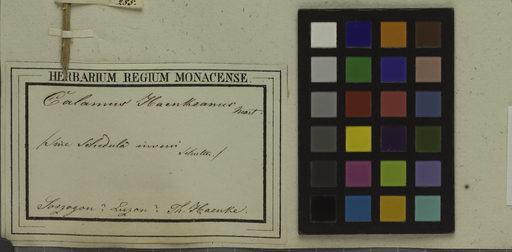 255.
HERBARIUM REGIUM MONACENSE.
Calamus Haenkeanus
Mart.
(sine Schedula inveni
Schultes.)
Sorzogon? Luzon? Th. Haenke.